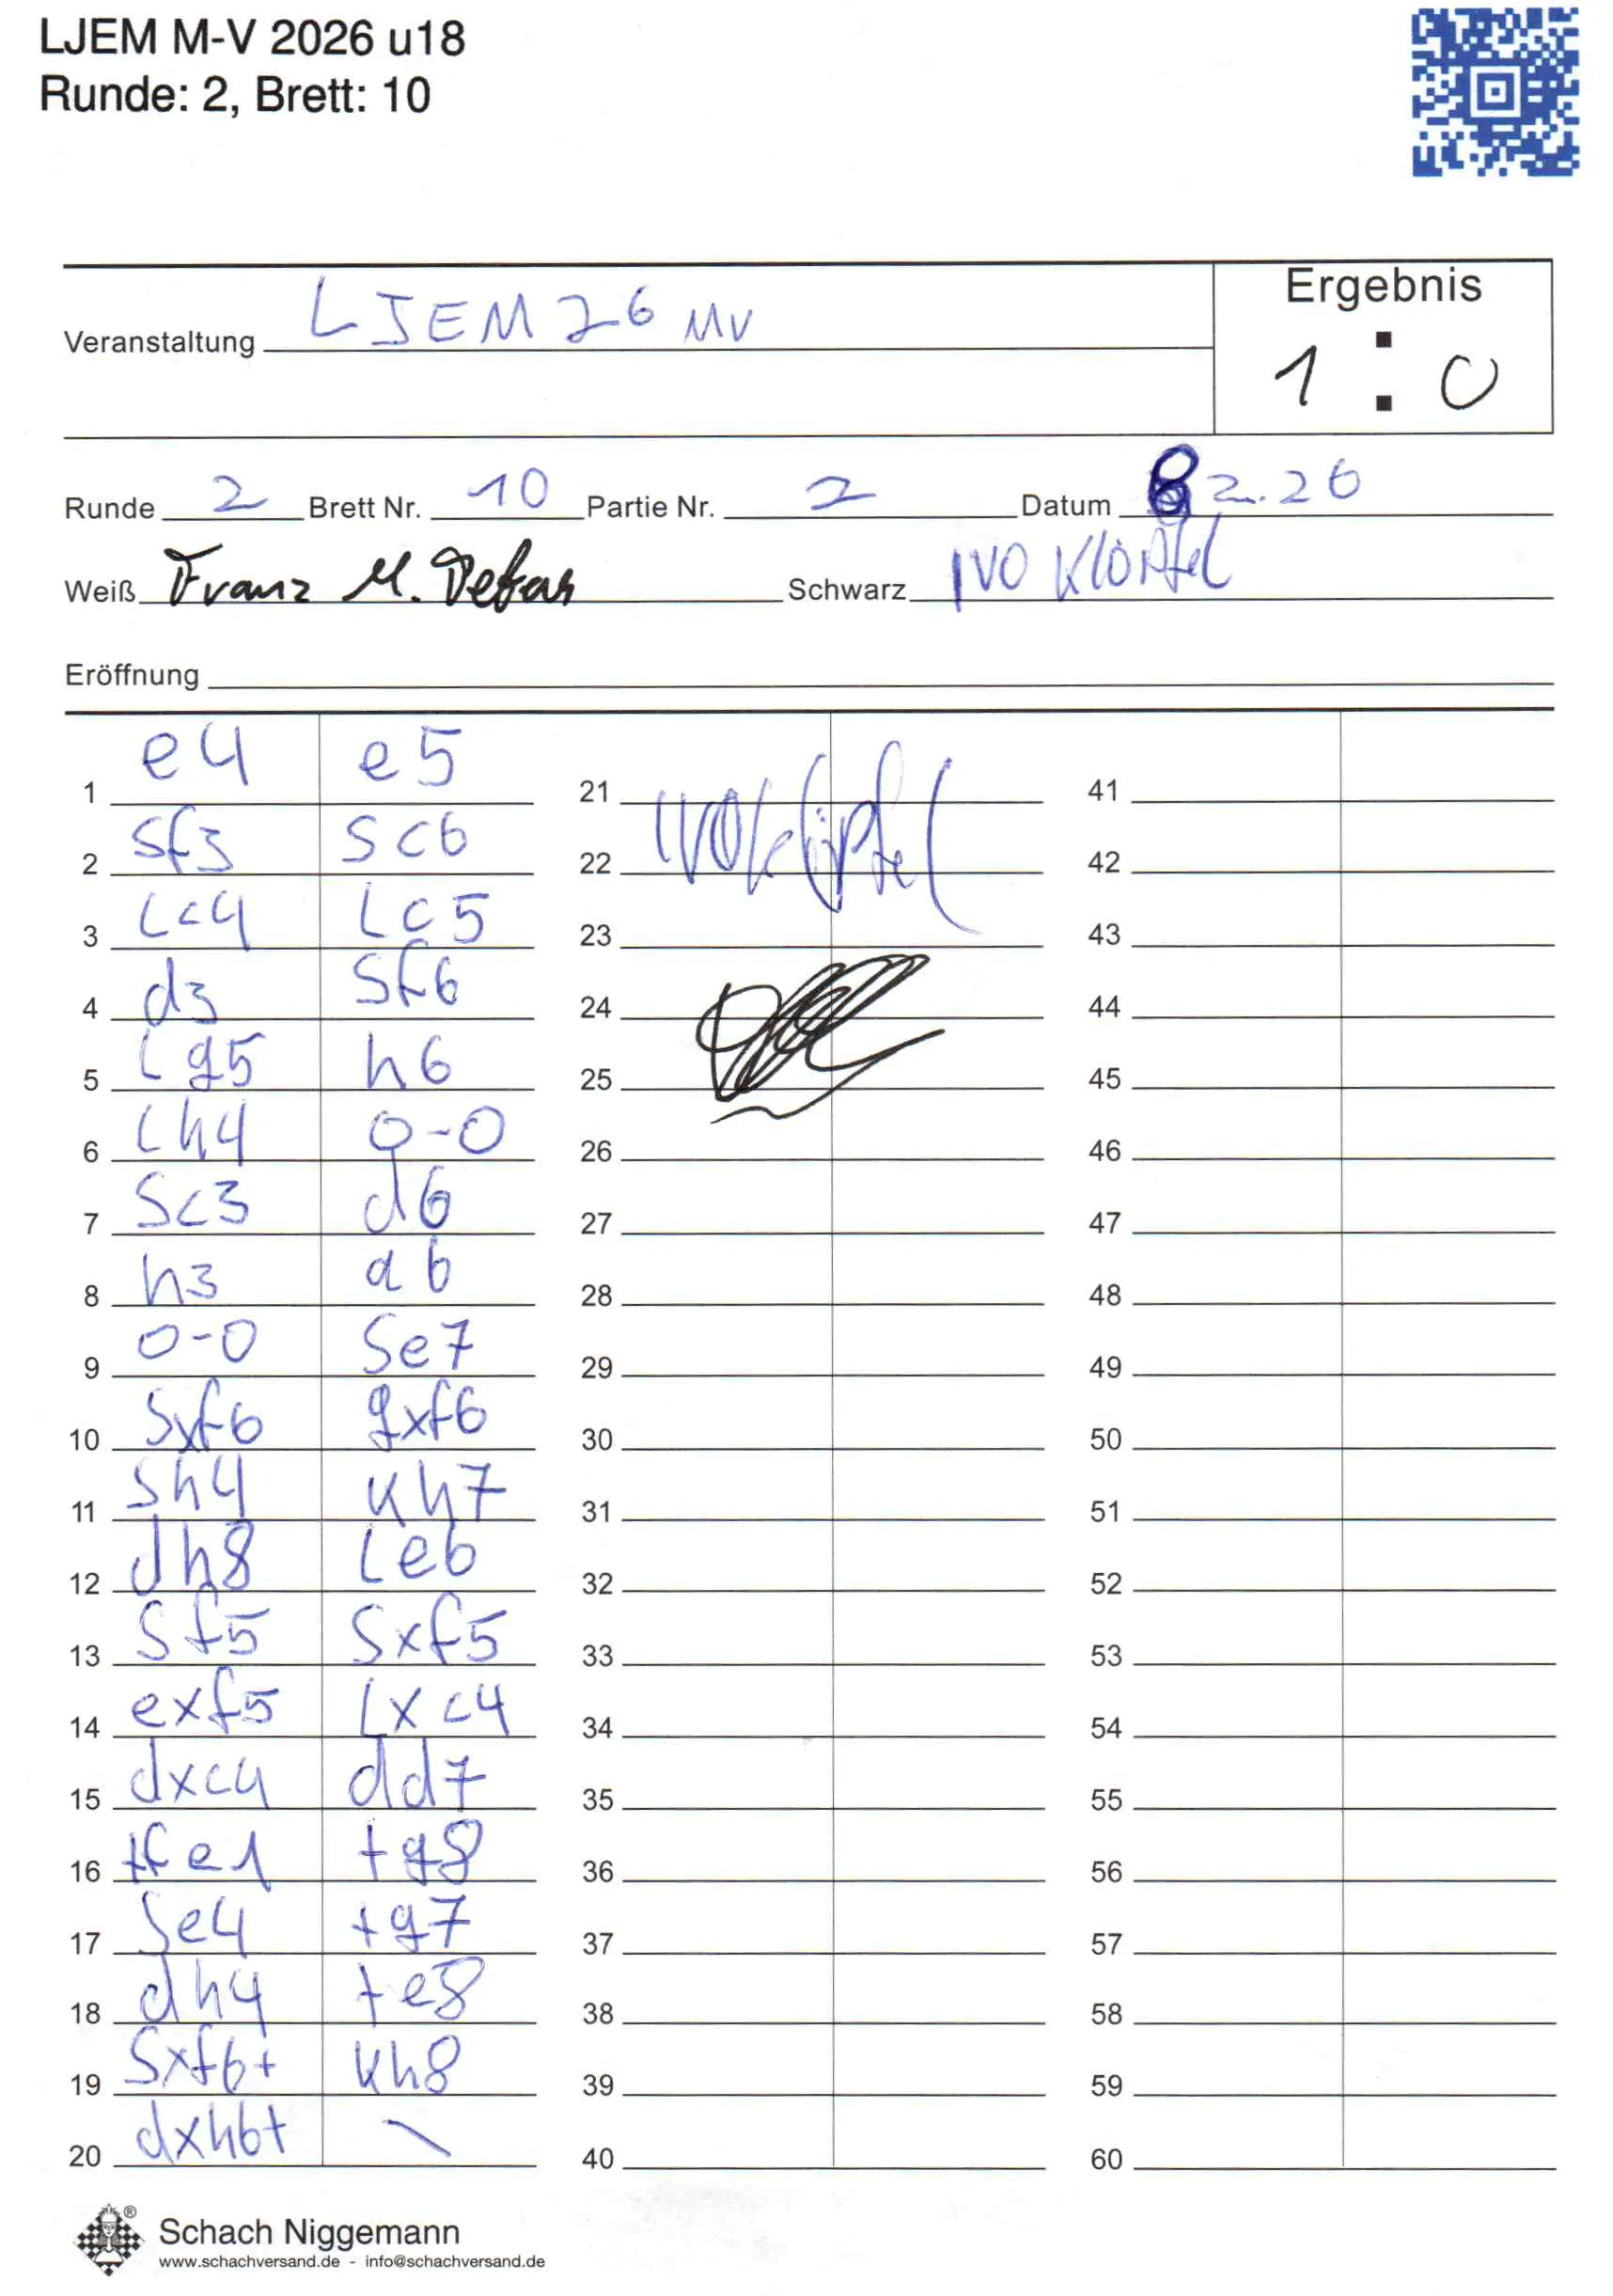 LJEM M-V 2026 u18
Runde: 2, Brett: 10
Ergebnis
Veranstaltung LJEM 26 MV
1 : 0
Runde 2 Brett Nr. 10 Partie Nr. 2 Datum 8 2.26
Weiß Franz M. Schwarz IVO Klöpfel
Eröffnung
1 e4 e5 21 41
2 Sf3 Sc6 22 IVO Klöpfel 42
3 Lc4 Lc5 23 43
4 d3 Sf6 24 44
5 Lg5 h6 25 45
6 Lh4 0-0 26 46
7 Sc3 d6 27 47
8 h3 a6 28 48
9 0-0 Se7 29 49
10 Sxf6 gxf6 30 50
11 Sh4 Kh7 31 51
12 dh8 Le6 32 52
13 Sf5 Sxf5 33 53
14 exf5 Lxc4 34 54
15 dxc4 dd7 35 55
16 tfe1 tg8 36 56
17 Se4 tg7 37 57
18 dh4 te8 38 58
19 Sxf6+ Kh8 39 59
20 dxh6+ \ 40 60
Schach Niggemann ®
www.schachversand.de - info@schachversand.de